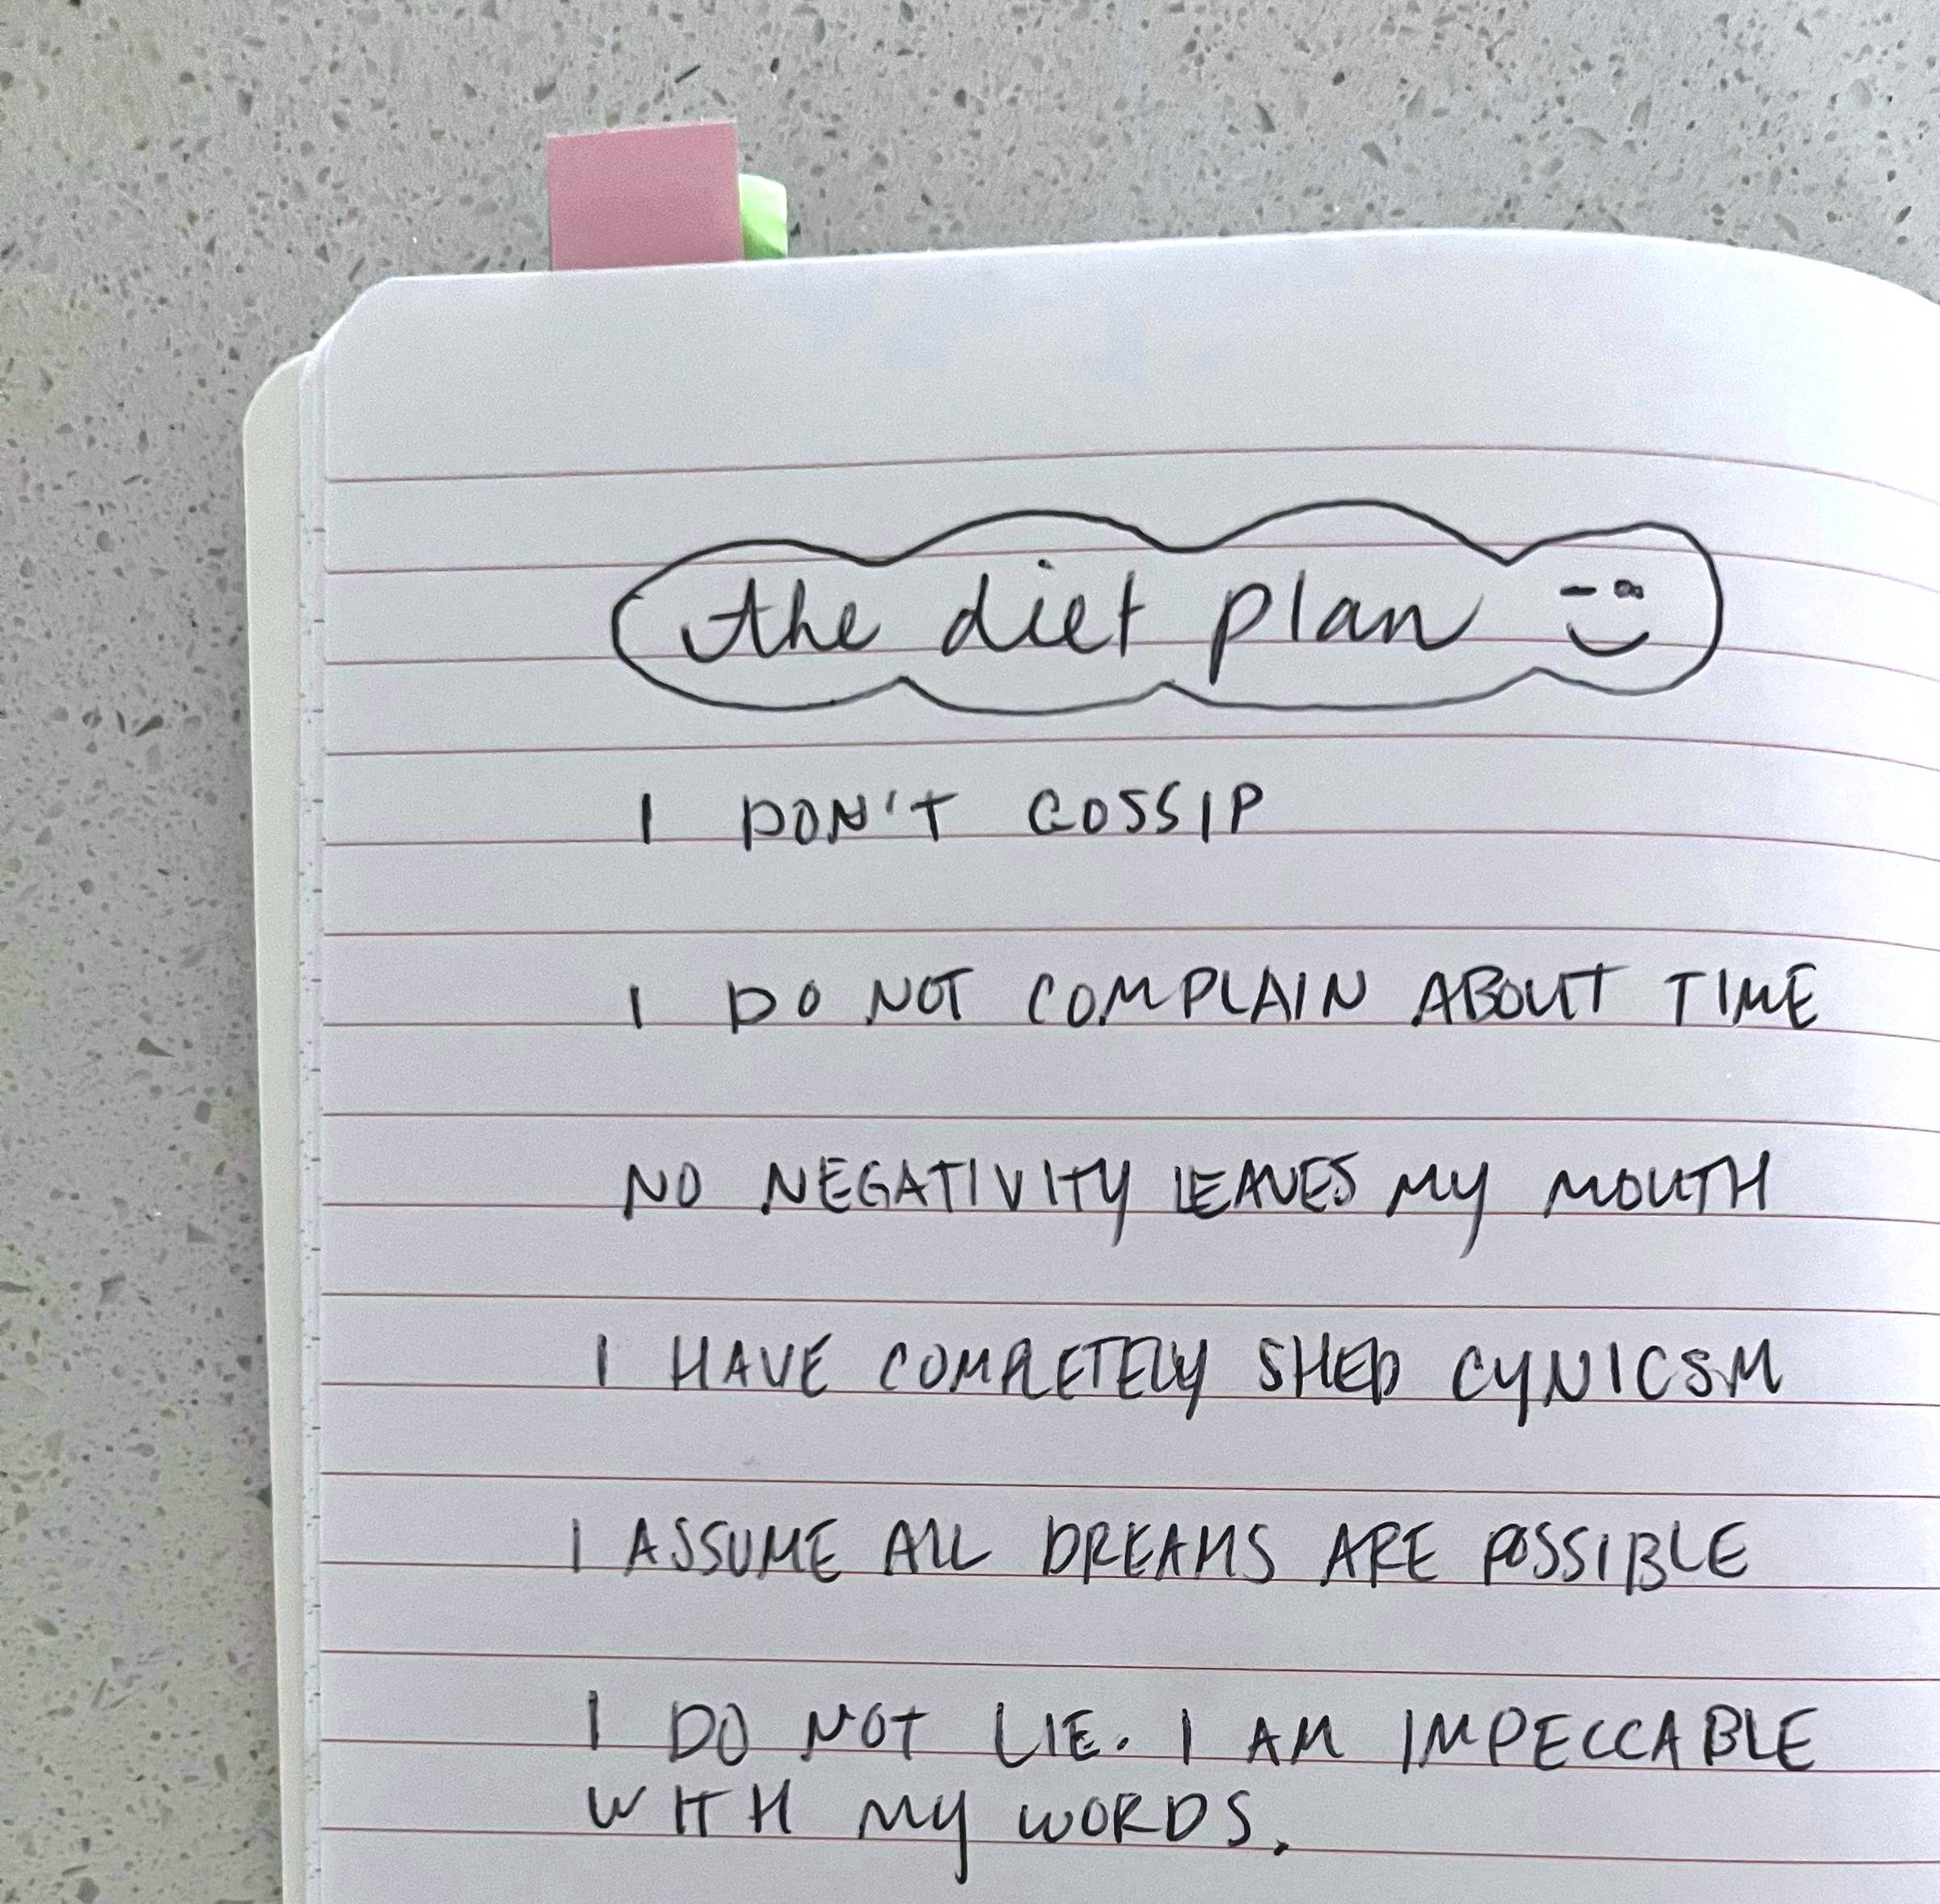 the diet plan
I DON'T GOSSIP
I DO NOT COMPLAIN ABOUT TIME
NO NEGATIVITY LEAVES MY MOUTH
I HAVE COMPLETELY SHED CYNICSM
I ASSUME ALL DREAMS ARE POSSIBLE
I DO NOT LIE. I AM IMPECCABLE
WITH MY WORDS.